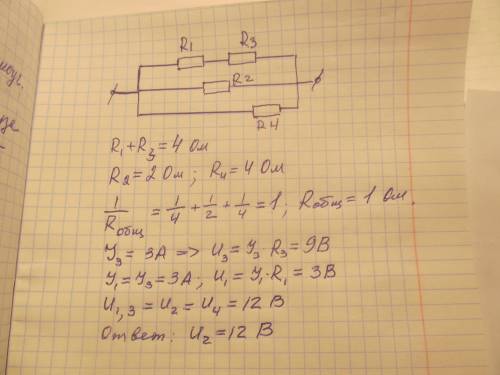 R1 R3
R2
R4
R1+R3=4 Ом
R2=2 Ом; R4=4 Ом
1/Rобщ = 1/4 + 1/2 + 1/4 = 1; Rобщ = 1 Ом.
У3 = 3А => U3 = У3 · R3 = 9В
У1 = У3 = 3А; U1 = У1 · R1 = 3В
U1,3 = U2 = U4 = 12 В
Ответ: U2 = 12 В